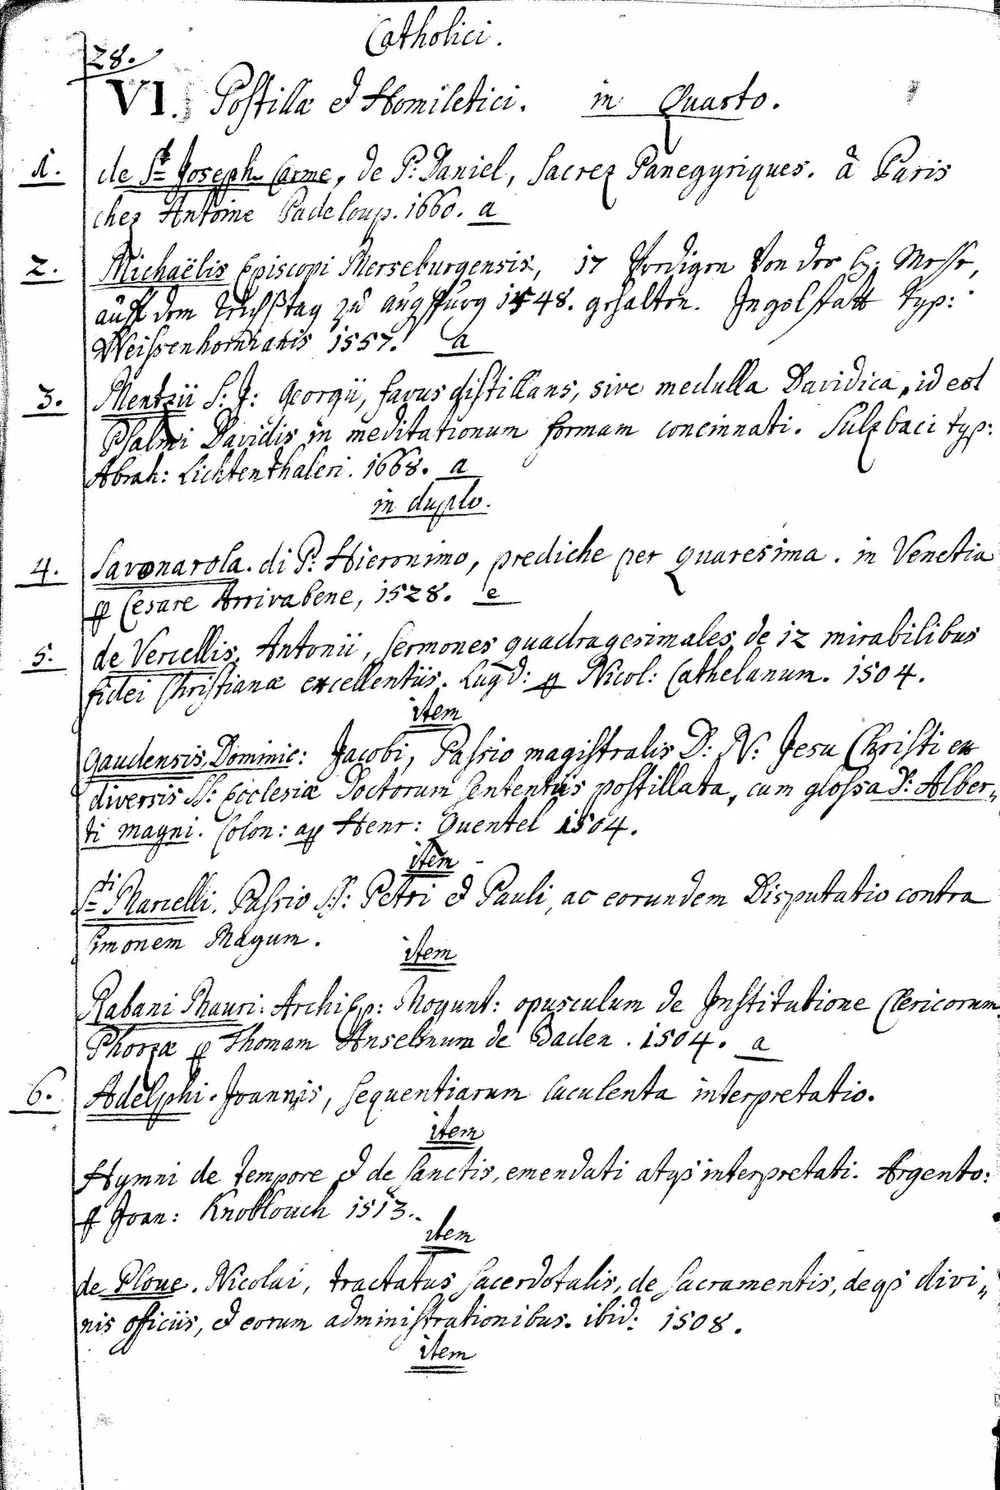 Catholici.
28.
VI. Postillæ et Homiletici. in Quarto.
1. de Sᵗ Joseph Carme, de P. Daniel, Sacrez Panegyriques. à Paris
chez Antoine Padeloup. 1660. a
2. Michaëlis Episcopi Merseburgensis, 17 Predigen Von der H: Messe,
auff dem Reichßtag zu Augspurg 1548. gehalten. Ingolstatt typ:
Weissenhornianis 1557. a
3. Mentzii S: J: Georgii, favus distillans, sive medulla Davidica, id est
Psalmi Davidis in meditationum formam concinnati. Sulzbaci typ:
Abrah: Lichtenthaleri. 1668. a
in duplo.
4. Savonarola. di P. Hieronimo, prediche per quaresima. in Venetia
p Cesare Arrivabene, 1528. e
5. de Vercellis, Antonii, sermones quadragesimales de 12 mirabilibus
fidei Christianæ excellentiis. Lugd: p Nicol: Cathelanum. 1504.
item
Gaudensis Dominic: Jacobi, Passio magistralis D: N: Jesu Christi ex
diversis SS: Ecclesiæ Doctorum sententiis postillata, cum glossa D: Alber„
ti magni. Colon: ap Henr: Quentel 1504.
item
Sᵗⁱ Marcelli. Passio SS: Petri et Pauli, ac eorundem Disputatio contra
Simonem Magum.
item
Rabani Mauri: ArchiEp: Mogunt: opusculum de Institutione Clericorum.
Phorzæ p Thomam Anselmum de Baden. 1504. a
6. Adelphi. Joannis, sequentiarum luculenta interpretatio.
item
Hymni de tempore et de Sanctis, emendati atqs interpretati. Argento:
p Joan: Knoblouch 1513.
item
de Ploue. Nicolai, tractatus sacerdotalis, de sacramentis, deqs divi„
nis officiis, et eorum administrationibus. ibid: 1508.
item